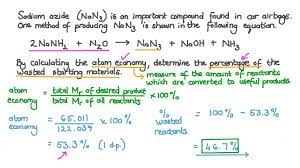 Sodium azide (NaN₃) is an important compound found in car airbags.
One method of producing NaN₃ is shown in the following equation.
2NaNH₂ + N₂O → NaN₃ + NaOH + NH₃
By calculating the atom economy, determine the percentage of the
wasted starting materials.
measure of the amount of reactants
which are converted to useful products
atom economy = total Mr of desired product / total Mr of all reactants × 100%
atom economy = 65.011 / 122.039 × 100%
= 53.3% (1 dp.)
% wasted reactants = 100% - 53.3%
= 46.7%